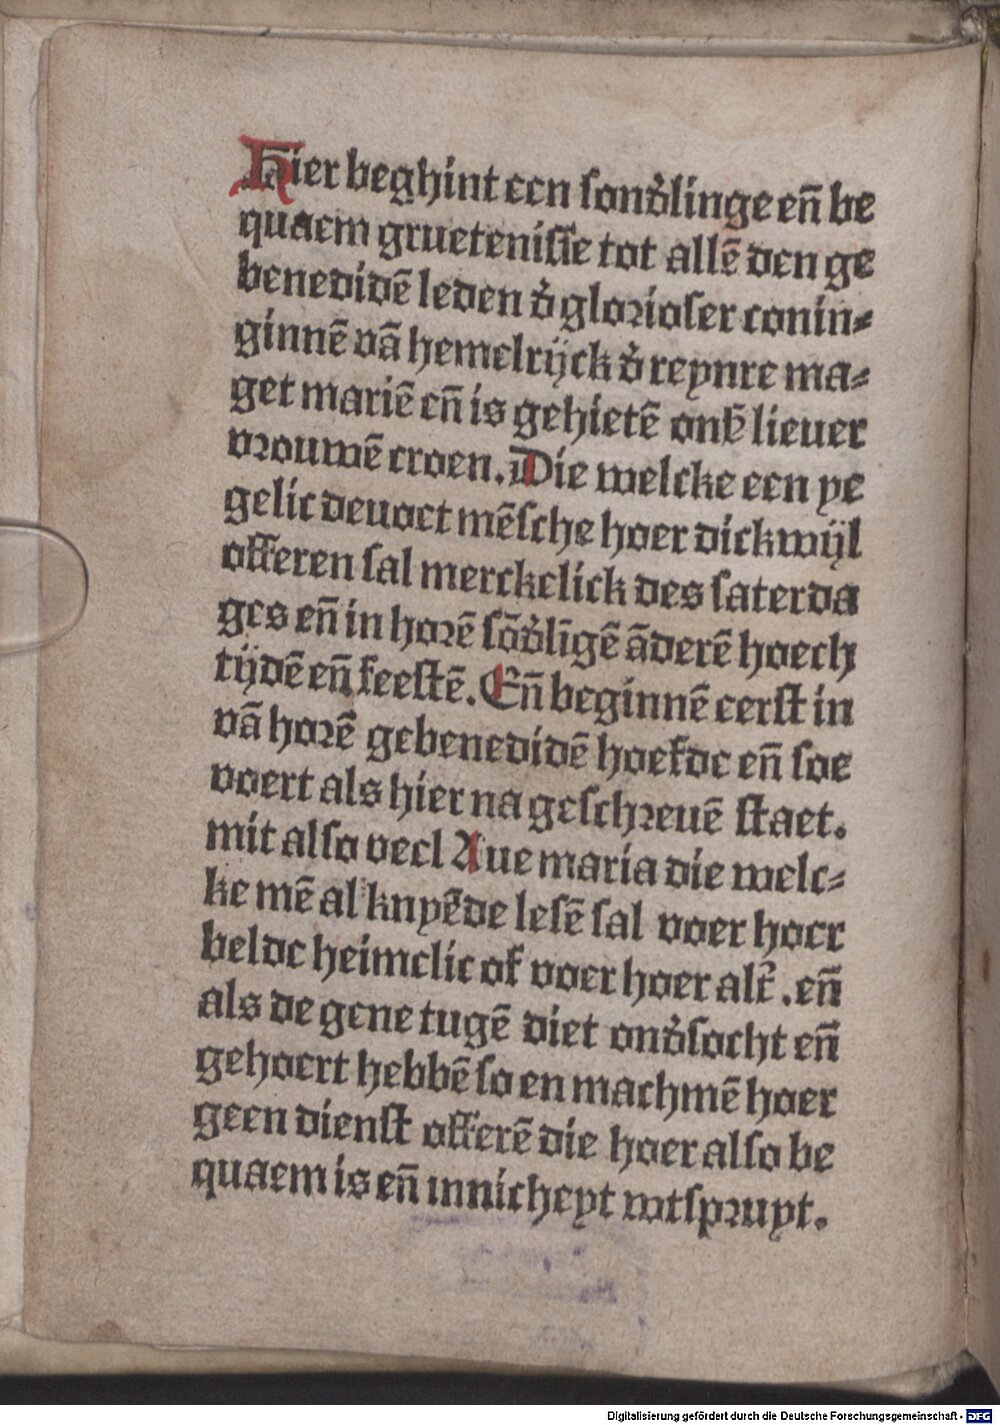 Hier beghint een sonđlinge en̄ be
quaem gruetenisse tot allē den ge
benedidē leden đ glorioser conin-
ginnē vā hemelrijck đ reynre ma-
get mariē en̄ is gehietē onẜ lieuer
vrouwē croen. Die welcke een ye
gelic deuoet mēsche hoer dickwijl
offeren sal merckelick des saterda
ges en̄ in horē sōđlīgē āderē hoech
tijdē en̄ feestē. En̄ beginnē eerst in
vā horē gebenedidē hoefde en̄ soe
voert als hier na geschreuē staet.
mit also veel Aue maria die welc-
ke mē al knyēde lesē sal voer hoer
belde heimelic of voer hoer alt̄. en̄
als de gene tugē diet onđsocht en̄
gehoert hebbē so en machmē hoer
geen dienst offerē die hoer also be
quaem is en̄ innicheyt wtspruyt.
Digitalisierung gefördert durch die Deutsche Forschungsgemeinschaft - DFG